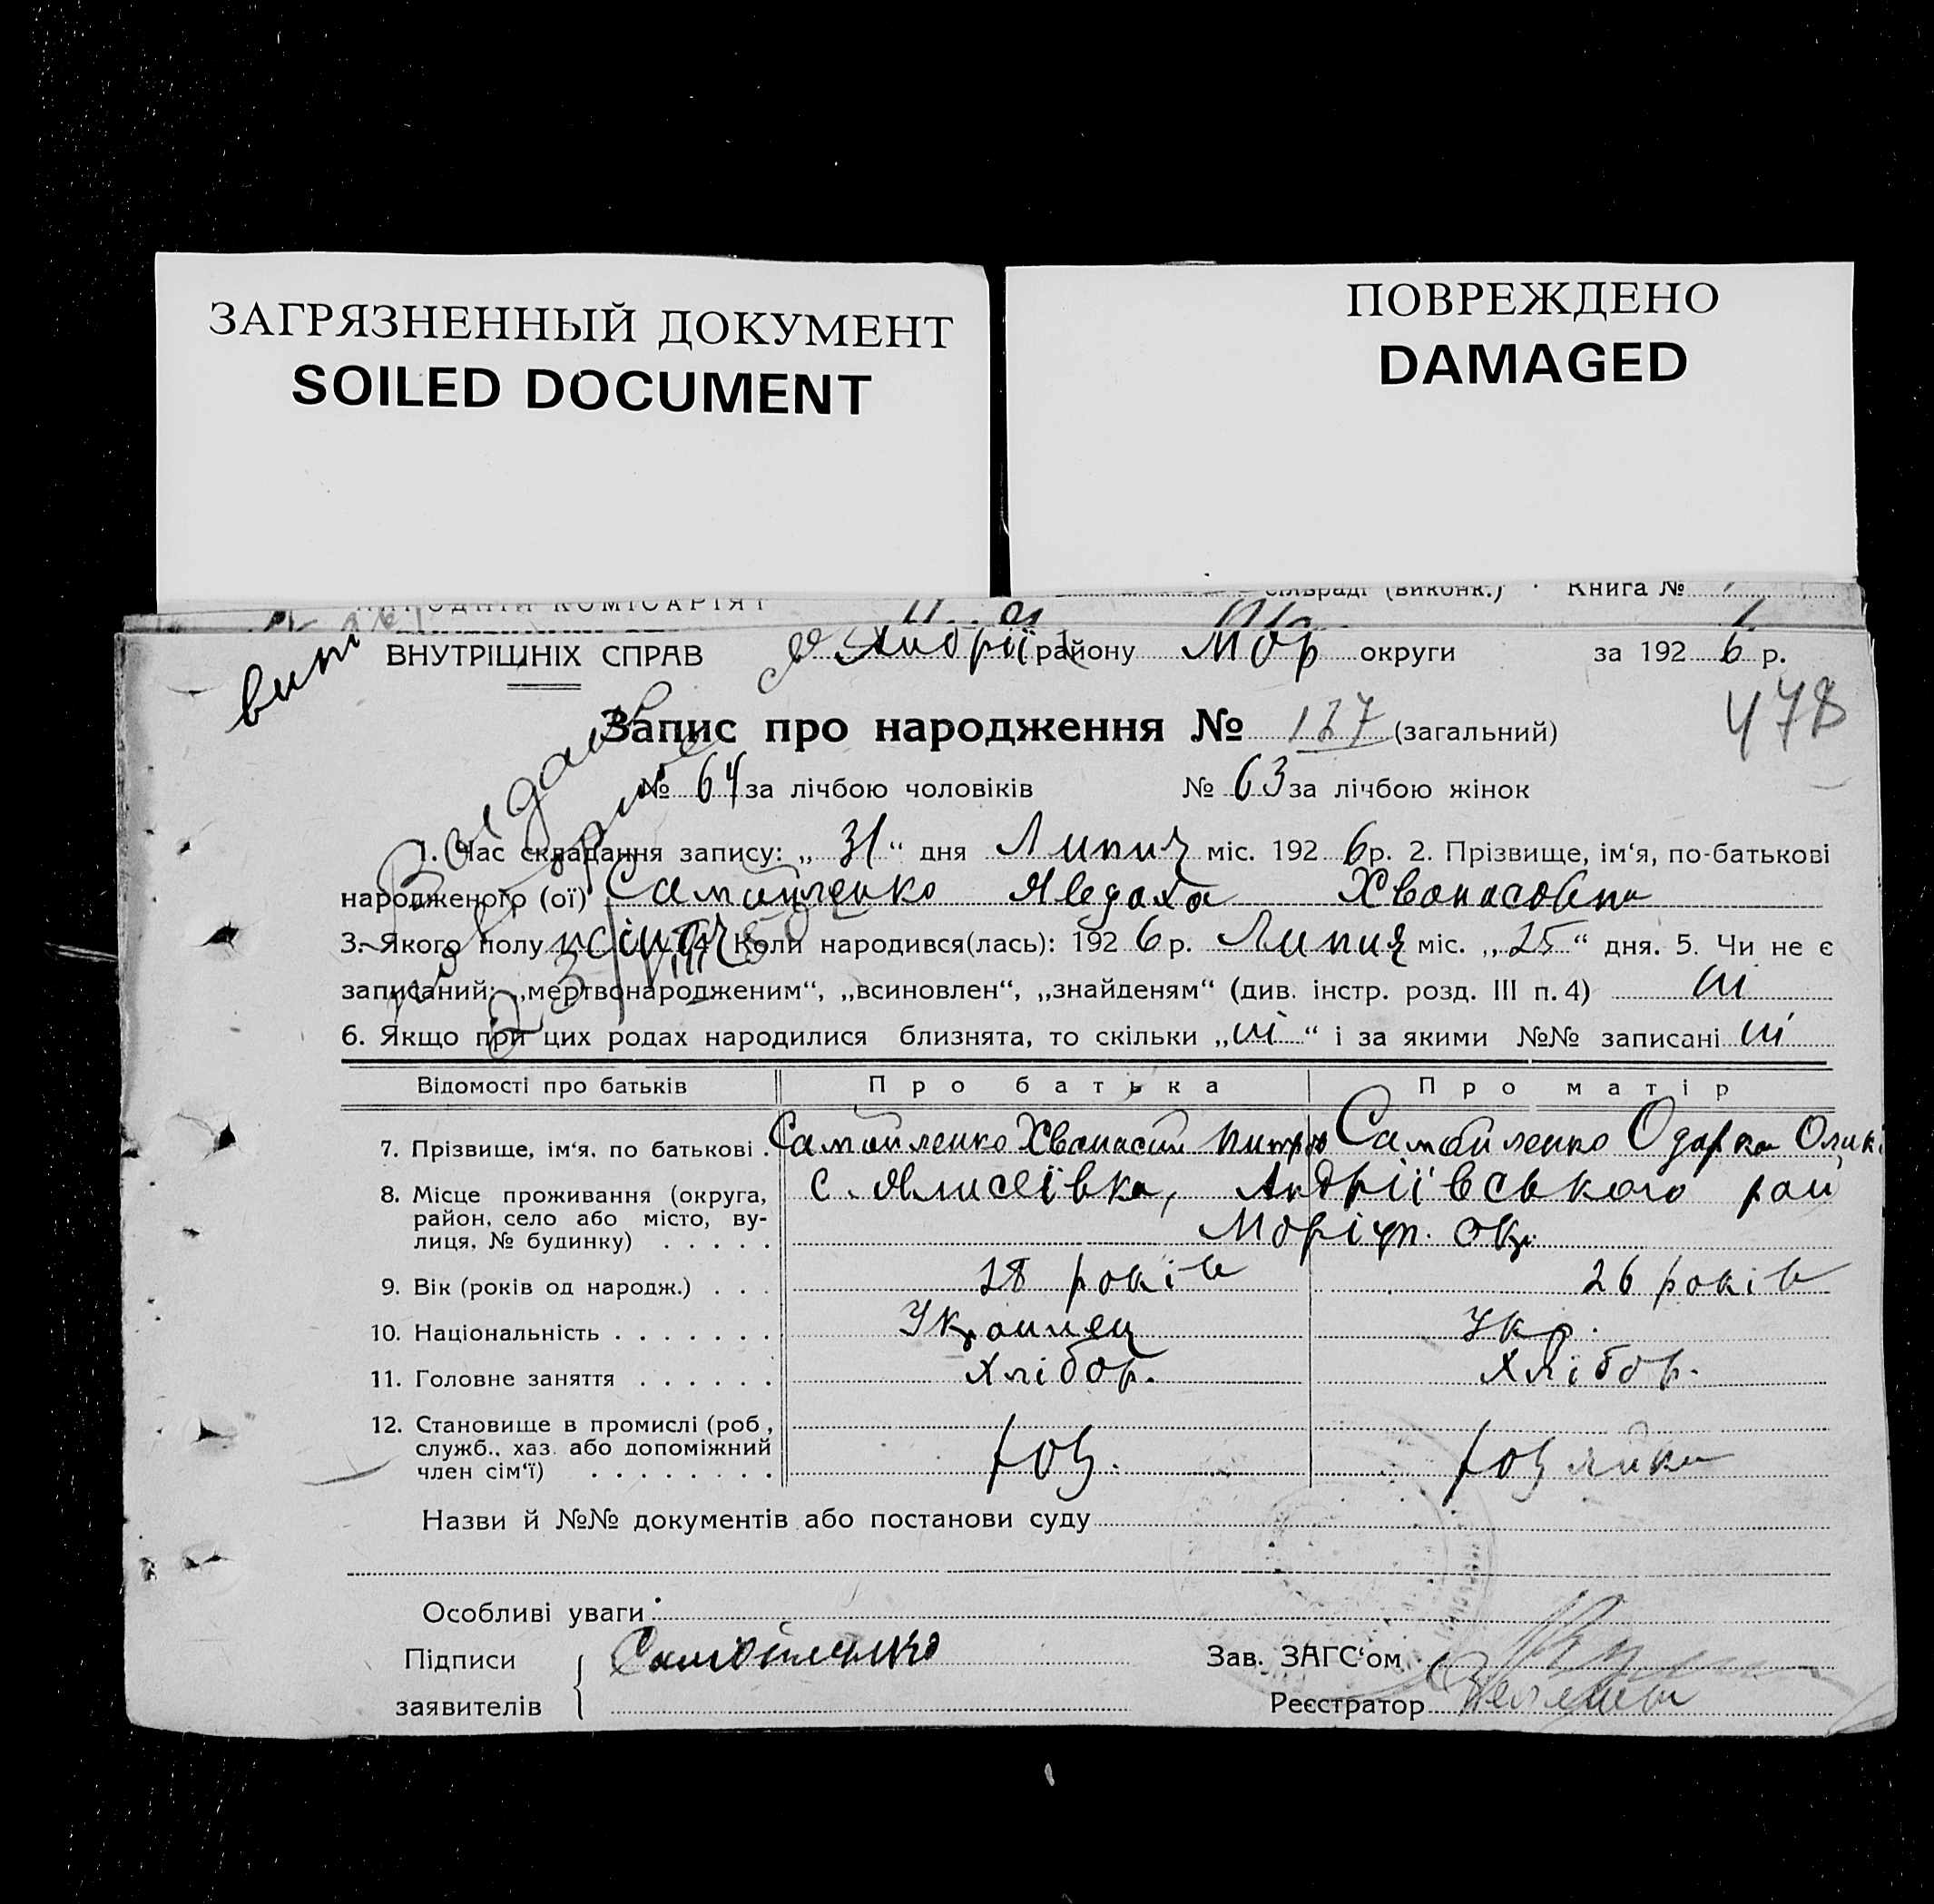 ЗАГРЯЗНЕННЫЙ ДОКУМЕНТ
SOILED DOCUMENT
ПОВРЕЖДЕНО
DAMAGED
НАРОДНІЙ КОМІСАРІЯТ сільраді (виконк.) Книга №
ВНУТРІШНІХ СПРАВ Андрії району Мор округи за 1926 р.
478
Запис про народження № 127 (загальний)
№ 64 за лічбою чоловіків № 63 за лічбою жінок
1. Час складання запису: „31“ дня Липня міс. 1926 р. 2. Прізвище, ім‘я, по-батькові
народженого (ої) Самойленко Явдоха Хванасовна
3. Якого полу жіноч 4. Коли народився(лась): 1926 р. Липня міс. „25“ дня. 5. Чи не є
записаний: „мертвонародженим“, „всиновлен“, „знайденям“ (див. інстр. розд. III п. 4) ні
6. Якщо при цих родах народилися близнята, то скільки „ні“ і за якими №№ записані ні
Відомості про батьків Про батька Про матір
7. Прізвище, ім‘я, по батькові . Самойленко Хванасий Самойленко Одарка
8. Місце проживання (округа, с. Андріївського рай
район, село або місто, ву-
лиця, № будинку) . . . . . Моріуп. окр.
9. Вік (років од народж.) . . . 28 років 26 років
10. Національність . . . . . . . Украинец Укр.
11. Головне заняття . . . . . . Хлібор. Хлібор.
12. Становище в промислі (роб.,
служб., хаз. або допоміжний
член сім‘ї) . . . . . . . .
Назви й №№ документів або постанови суду
Особливі уваги
Підписи Самойленко Зав. ЗАГС‘ом
заявителів Реєстратор